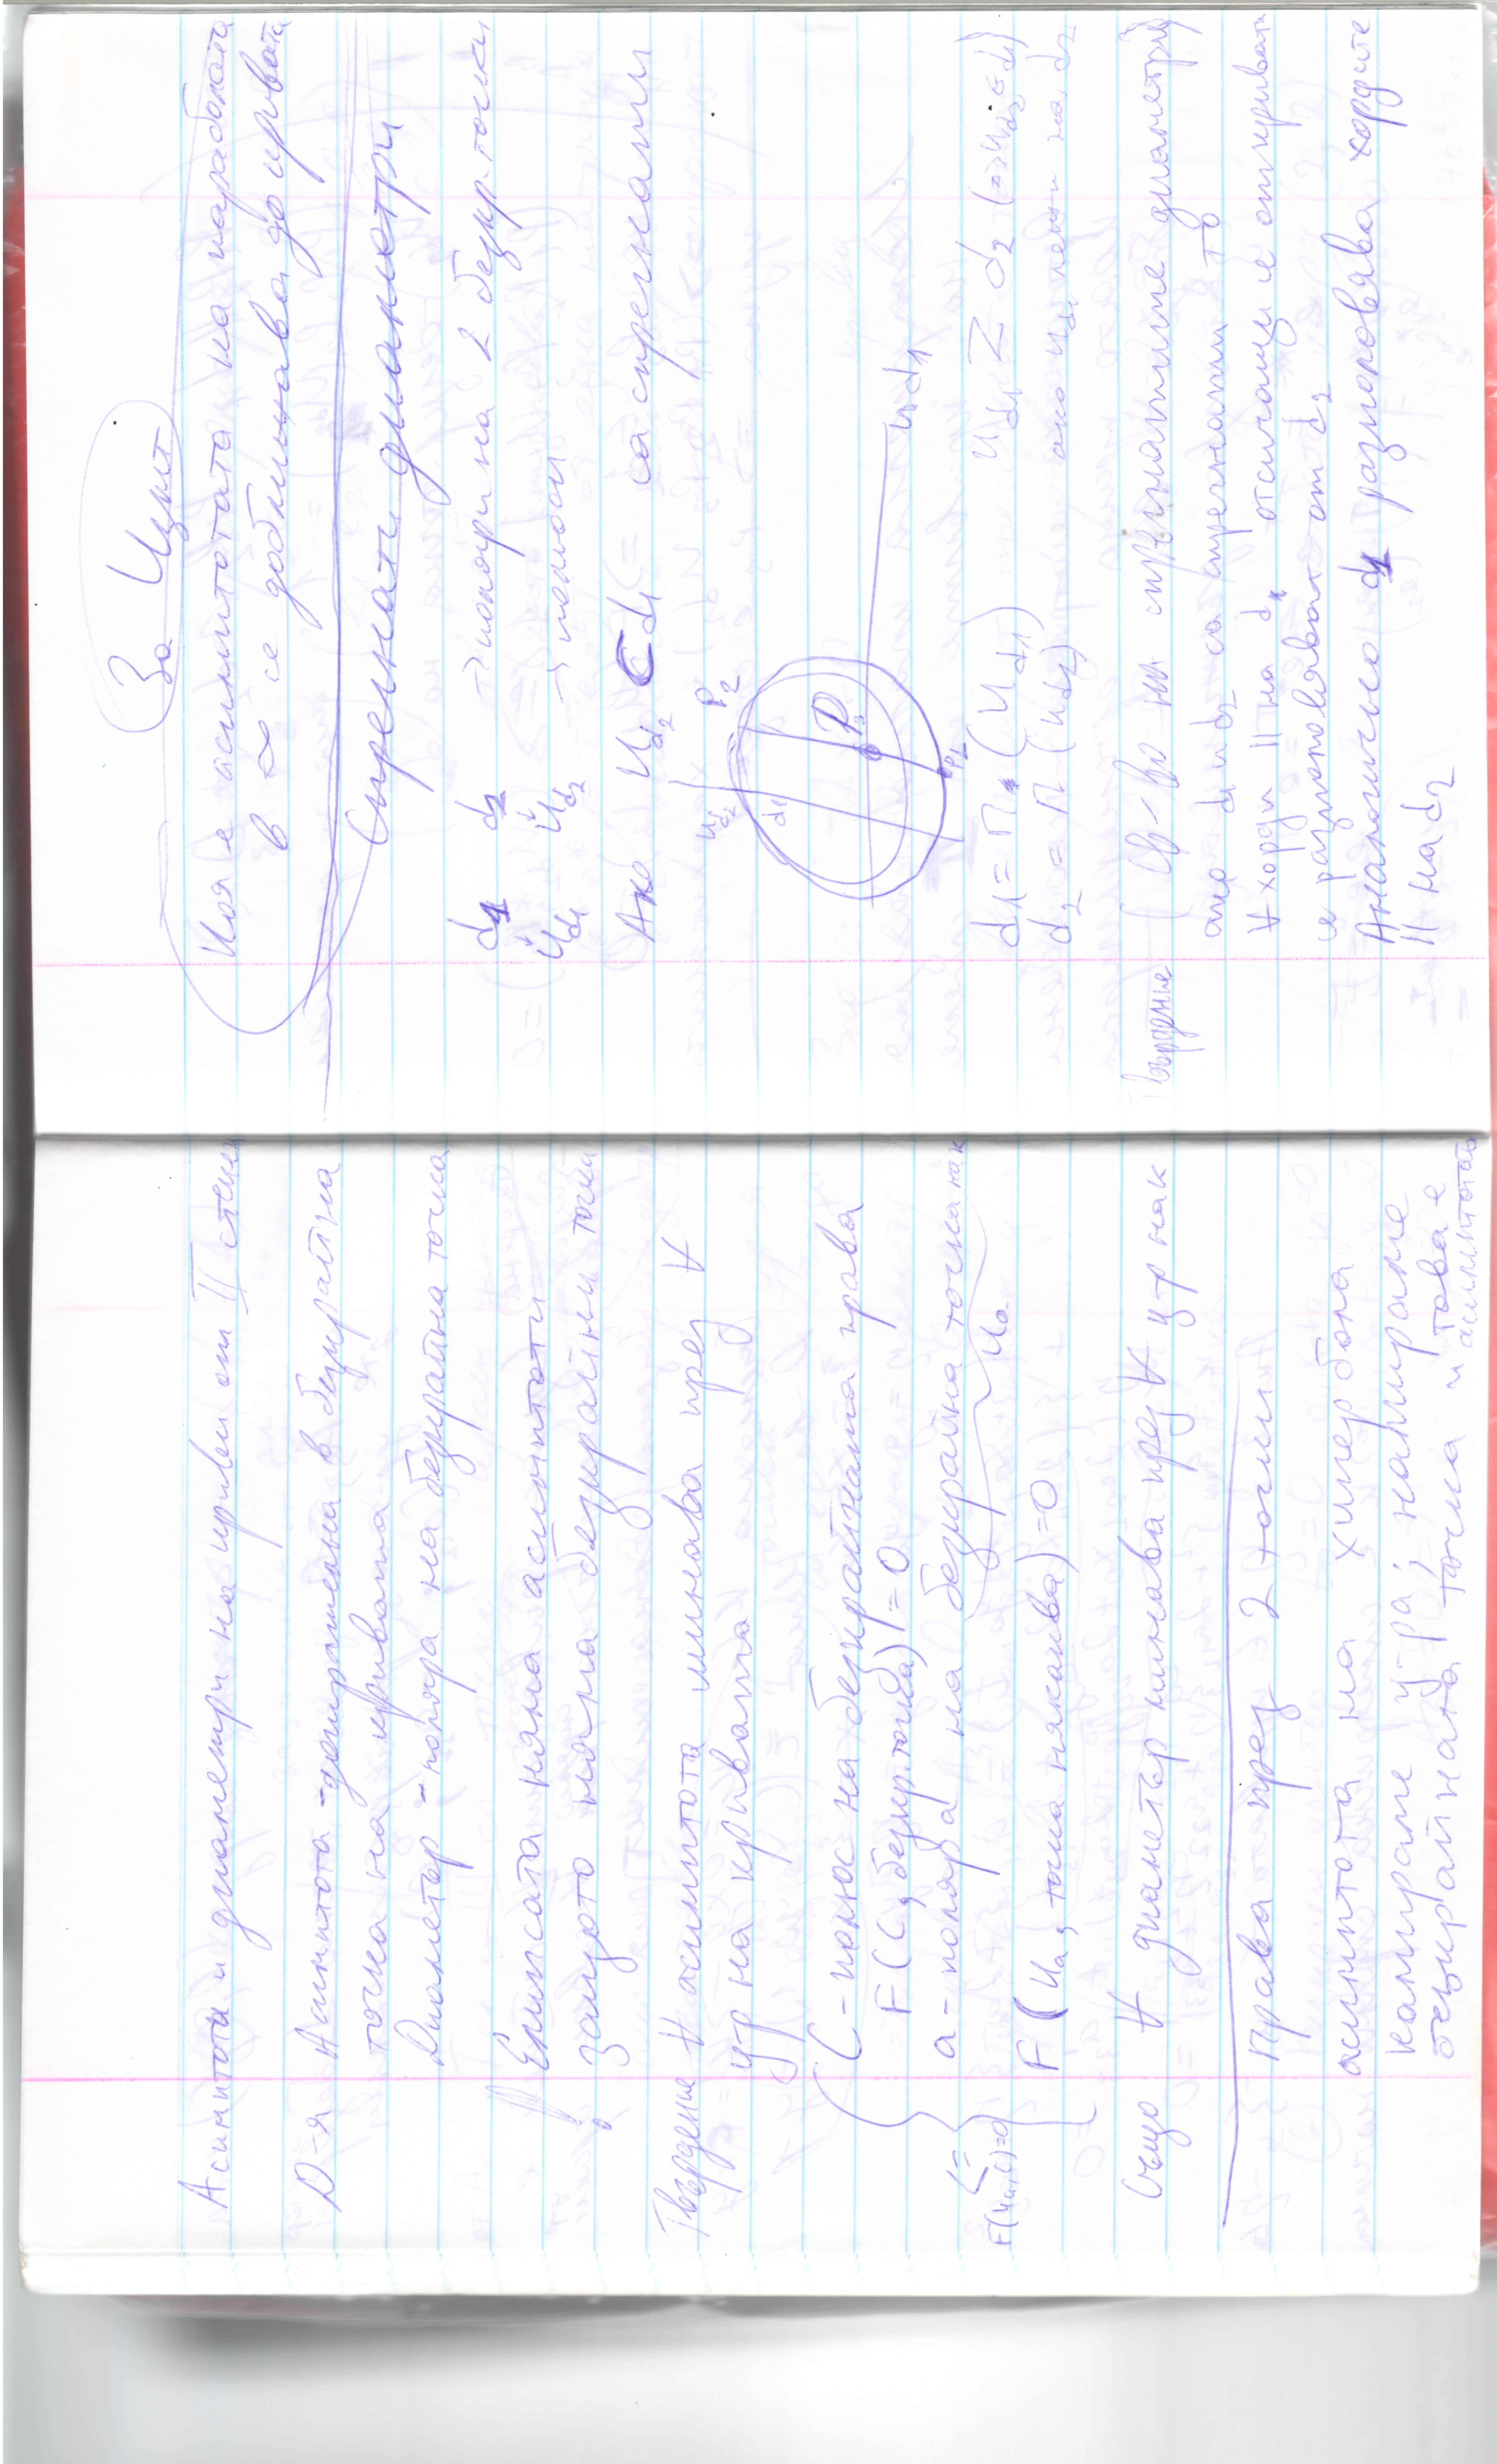 Асимптоти и диаметри на криви от II степен
D-я Асимптота - допирателна в безкрайна
точка на кривата
Диаметър - поляра на безкрайна точка
Елипсата няма асимптоти
защото няма безкрайни точки
Твърдение ∀ асимптота минава през ∀
ц-р на кривата
C - полюс на безкрайната права
F(C, безкр. точка) = 0
a - поляра на безкрайна точка нак
Ua
F(Ua, C)=0
F(Ua, точка някаква) = 0
Също ∀ диаметър минава през ∀ ц-р нак
Права през 2 точки
асимптота на хипербола
намираме ц-ра, намираме
безкрайната точка и това е
асимптотата
За Изпит
Коя е асимптотата на параболата
в ∞ се доближава до кривата
Спрегнати диаметри
d1 d2 → поляри на 2 безкр. точки
Ud1 Ud2 → полюси
Ако Ud2 ⊂ d1 <= са спрегнати
Ud2 P2
d1 P
Ud1
d1 = П (Ud1) Ud1 Z d2 (=> Ud2 ∈ d1)
d2 = П (Ud2)
Твърдение Св-во на спрегнатите диаметри
ако d1 и d2 са спрегнати то
∀ хорди || на d1 отсичащи се от кривата
се разполовяват от d2
Аналогично d1 разполовява хордите
|| на d2